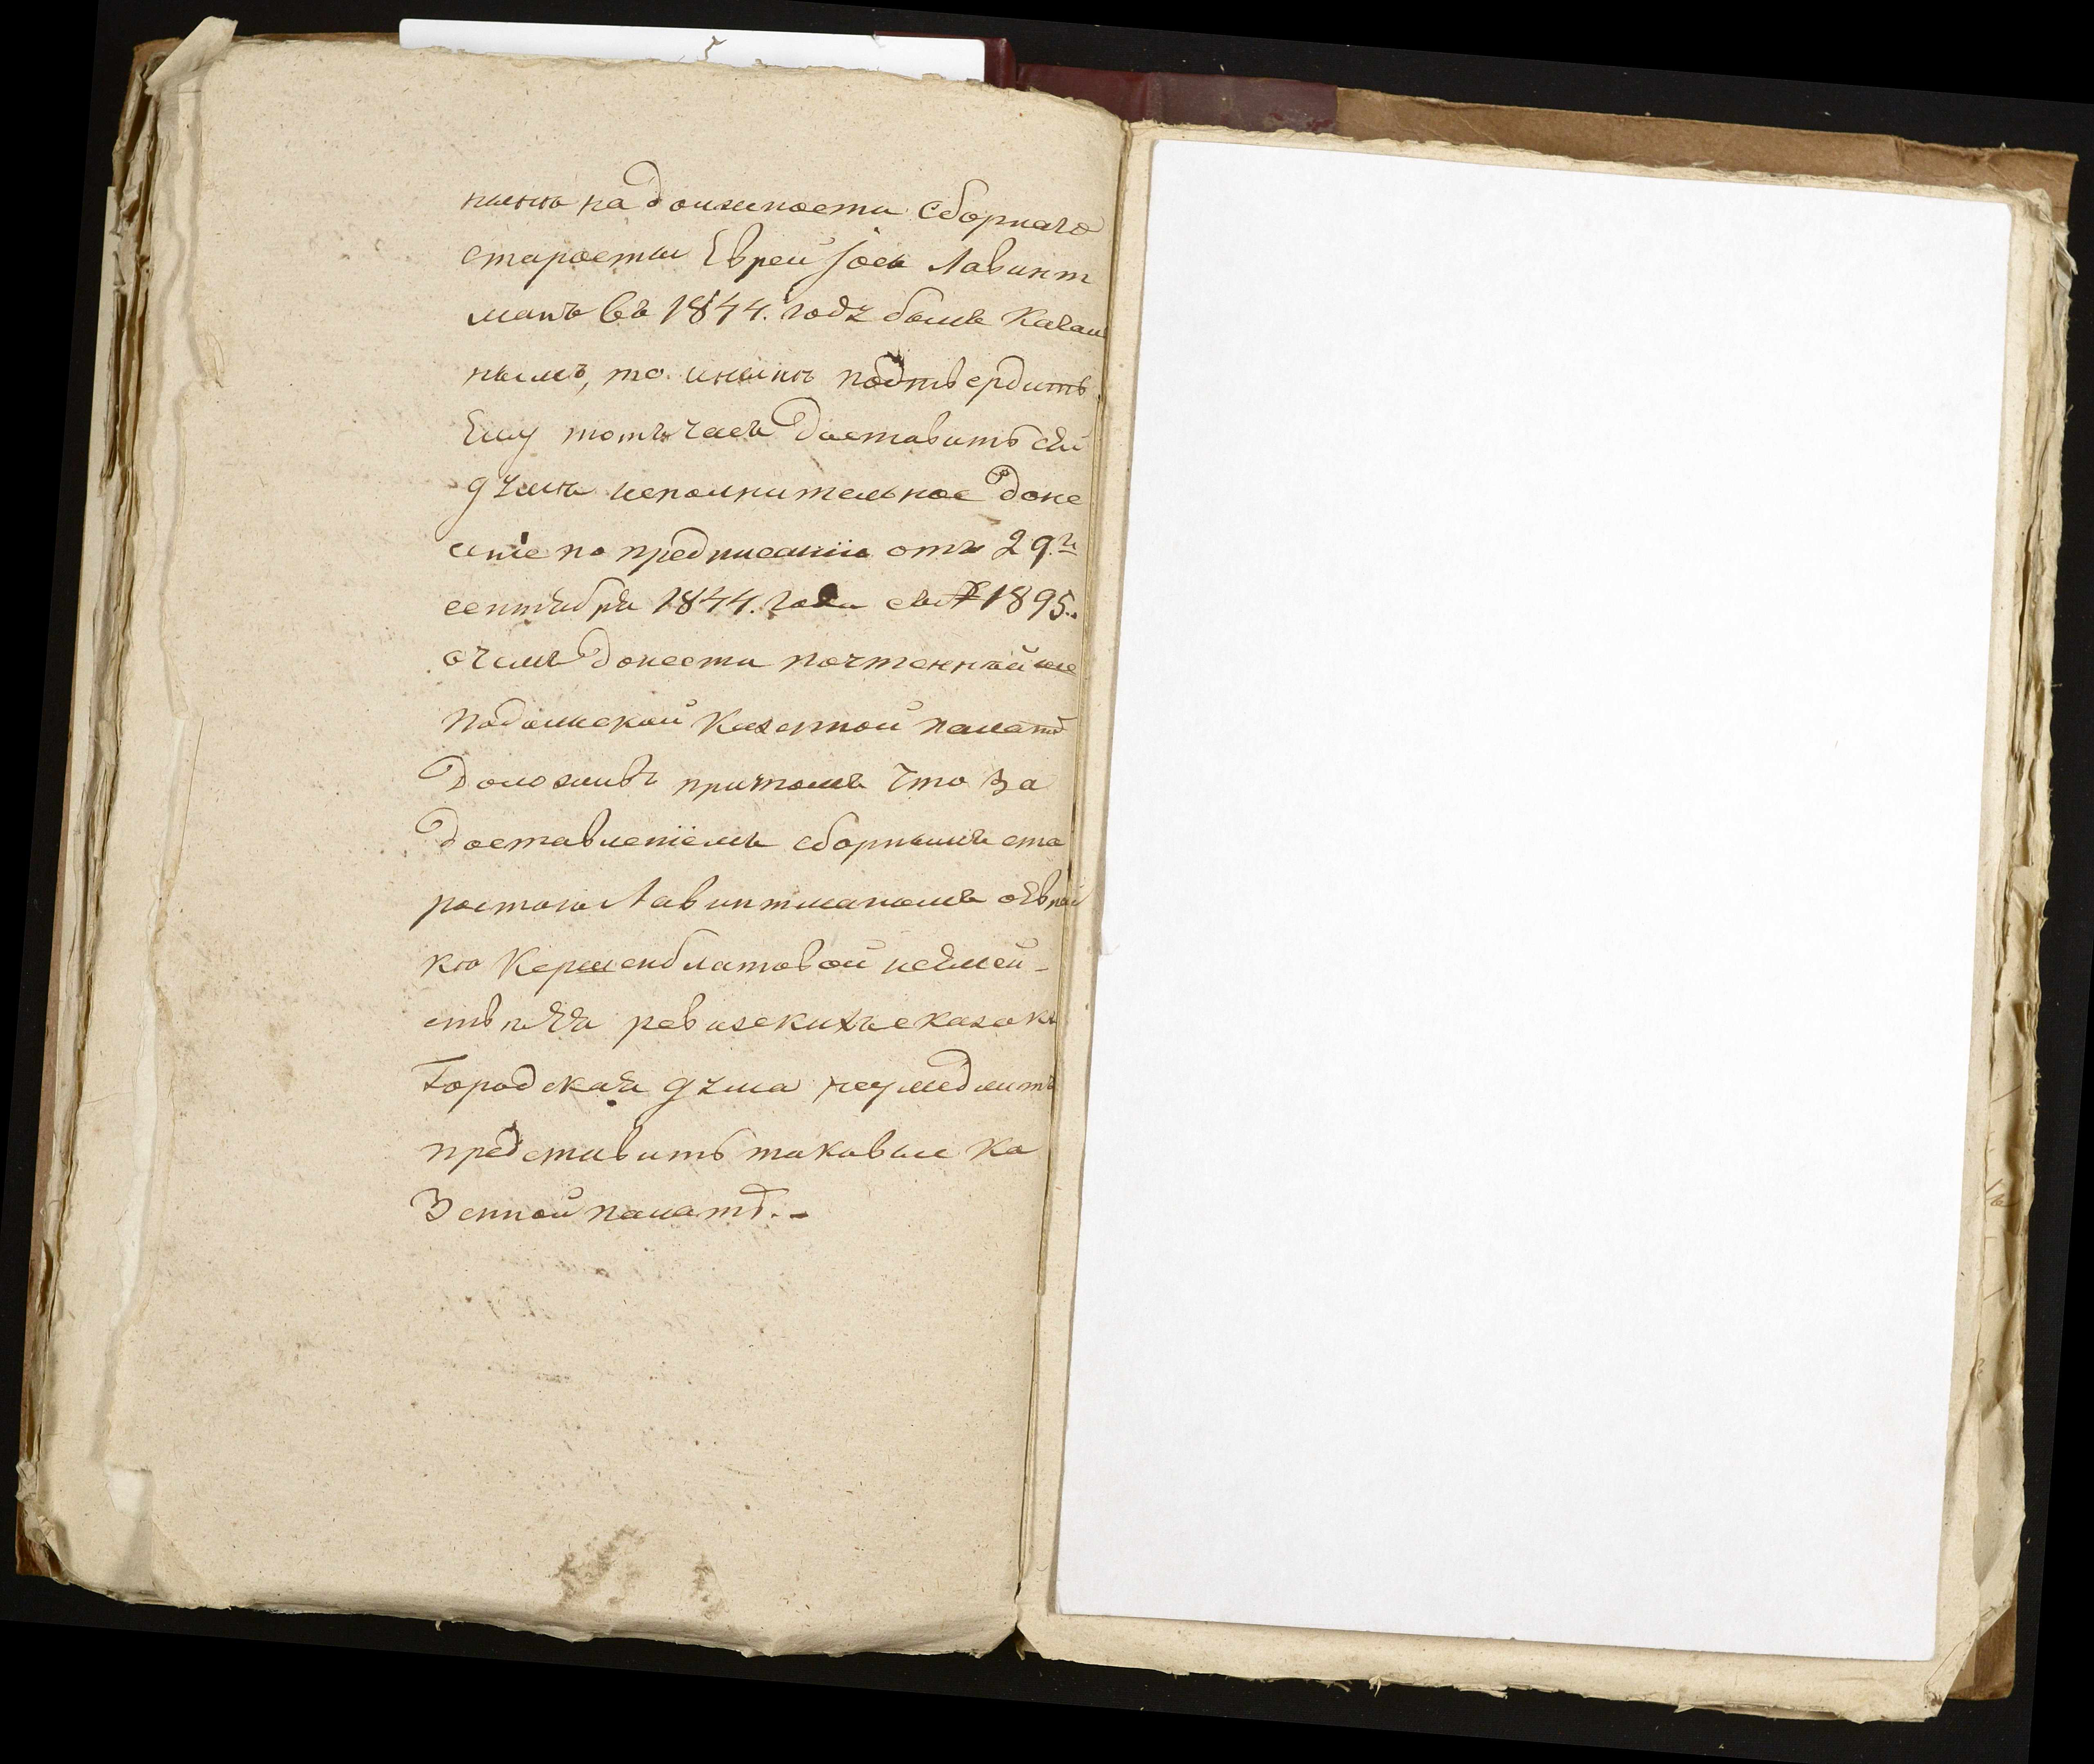 нынѣ на должности сборнаго
старосты Еврей Іось Лавинт
манъ въ 1844. году былъ Кагаль
нымъ, то и нынѣ подтвердить
Ему тотъ часъ доставить сей
думѣ исполнительное доне
сеніе по предписанію отъ 29.го
сентября 1844. года съ № 1895.
о чемъ донести почтеннѣйше
Подольской Казенной палатѣ
Доложивъ притомъ что за
доставленіемъ сборнымъ ста
ростою Лавинтманомъ о Еврей
кѣ Кершенблатовой
ревизскихъ сказокъ
Городская дума неумедлитъ
представить таковые Ка
Зенной палатѣ. –